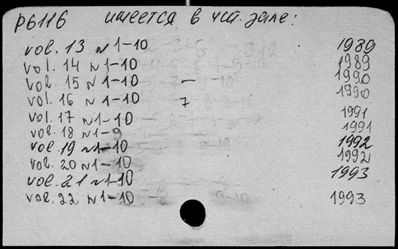 P6116 имеется в чит. зале:
vol. 13 N 1-10 1989
vol. 14 N 1-10 1989
vol. 15 N 1-10 - 1990
vol. 16 N 1-10 1990
vol. 17 N 1-10 1991
vol. 18 N 1-9 1991
vol. 19 N 1-10 1992
vol. 20 N 1-10 1992
vol. 21 N 1-10 1993
vol. 22 N 1-10 1993